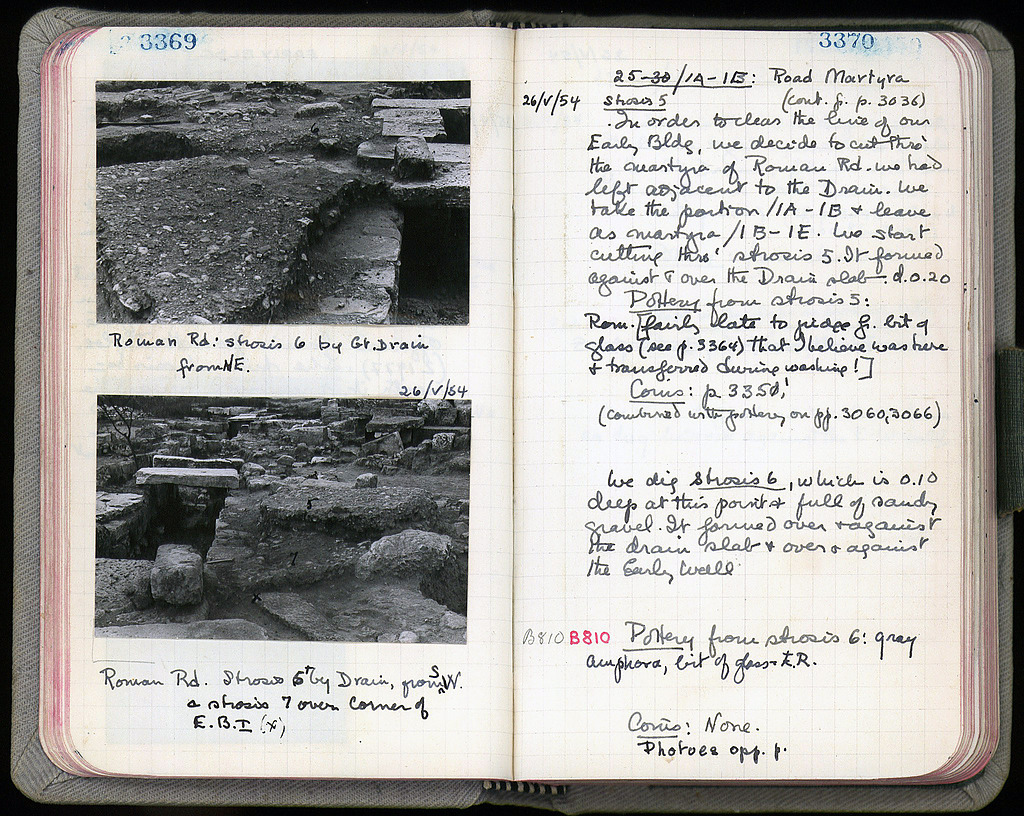 3369
Roman Rd: strosis 6 by Gt. Drain
from NE.
26/V/54
5
7
x
Roman Rd. Strosis 5 by Drain, from SW.
& strosis 7 over corner of
E.B.I (x)
3370
25-30/1A-1E: Road Martyra
26/V/54 strosis 5 (cont. f. p. 3036)
In order to clear the line of our
Early Bldg, we decide to cut thro'
the martyra of Roman Rd. we had
left adjacent to the Drain. We
take the portion /1A-1B & leave
as martyra /1B-1E. We start
cutting thro' strosis 5. It formed
against & over the Drain slab. d. 0.20
Pottery from strosis 5:
Rom. [fairly late to judge f. bit of
glass (see p. 3364) that I believe was here
& transferred during washing!]
Coins: p 3350!
(combined with pottery on pp. 3060, 3066)
We dig strosis 6, which is 0.10
deep at this point & full of sandy
gravel. It formed over & against
the drain slab & over & against
the Early Wall
B810 B810 Pottery from strosis 6: gray
amphora, bit of glass - E.R.
Coins: None.
Photoes opp. p.